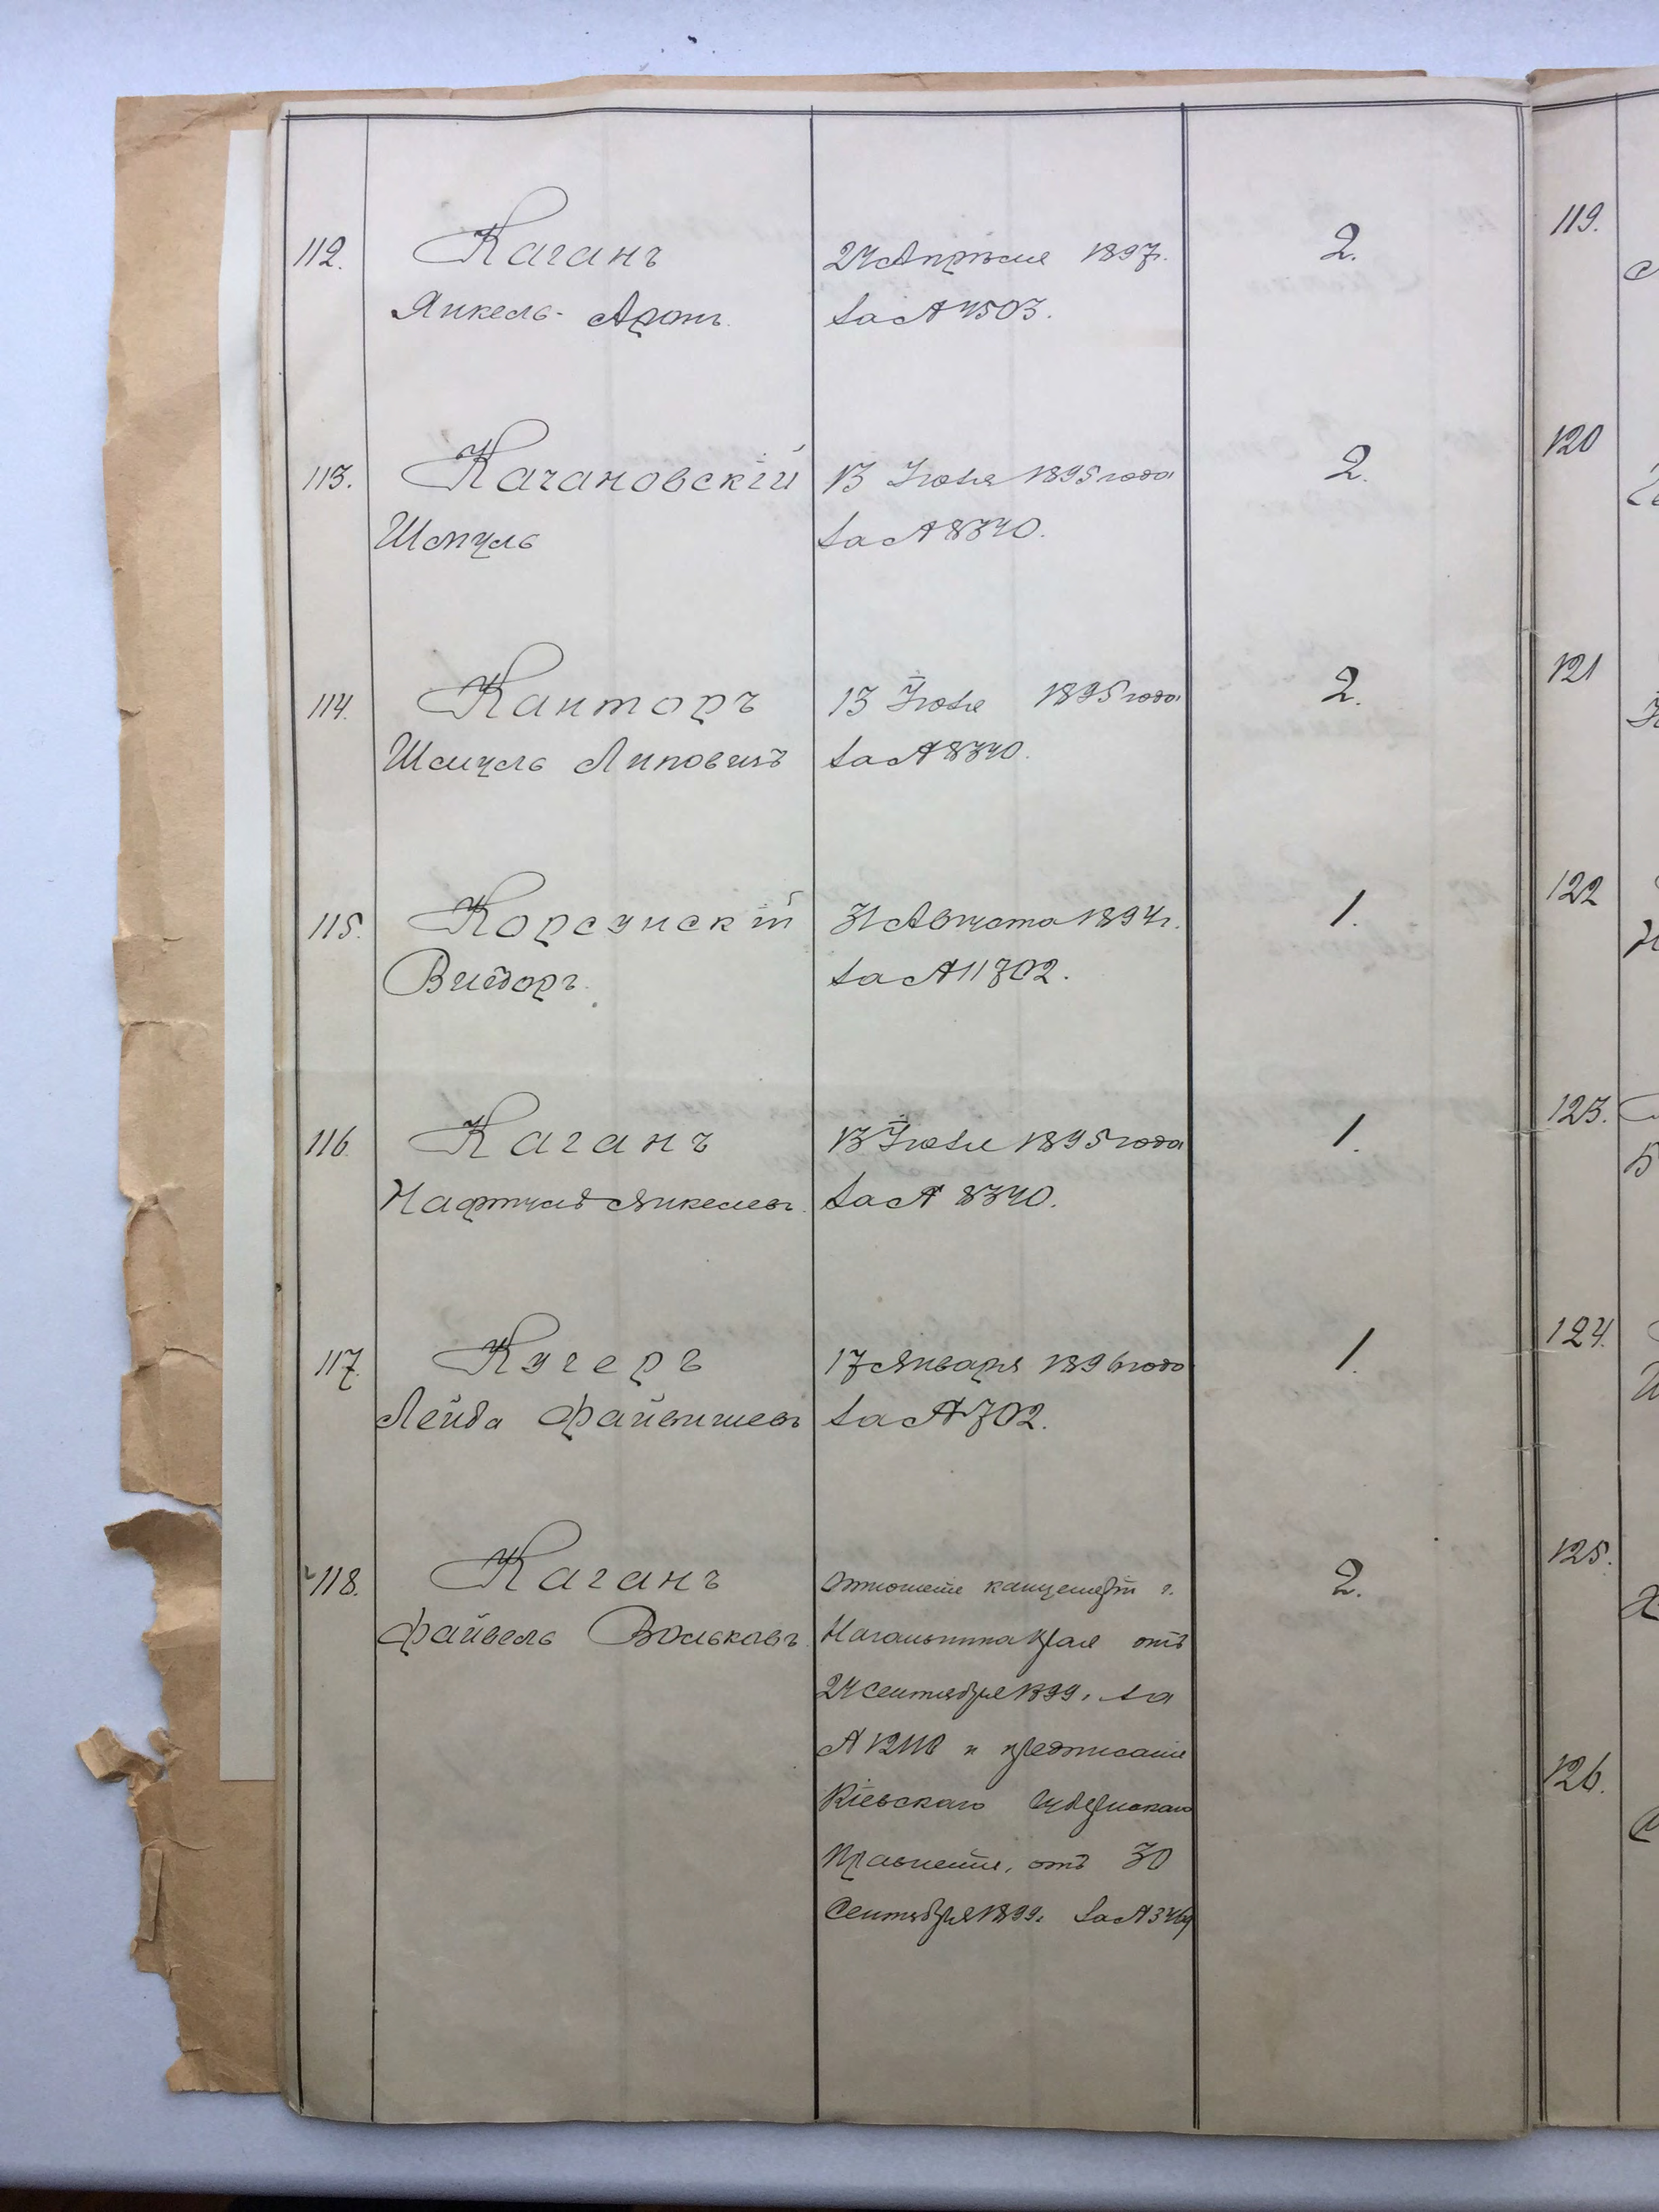 112. Каганъ 24 Апрѣля 1897г. 2.
Янкель-Аронъ. за № 4503.
113. Качановскій 13 Іюля 1895 года 2.
Шмуль за № 8340.
114. Канторъ 13 Іюля 1895 года 2.
Шмуль Липовичъ за № 8340.
115. Корсунскій 31 Августа 1894г. 1.
Вигдоръ. за № 11702.
116. Каганъ 13 Іюля 1895 года 1.
Нафтулъ Янкелевъ. за № 8340.
117. Кучеръ 17 Января 1896 года 1.
Лейба Файвишевъ за № 702.
118. Каганъ Отношеніе канцеляріи г. 2.
Файвель Вольковъ. Начальника Края отъ
24 Сентября 1899г. за
№ и предписаніе
Кіевскаго Губернскаго
Правленія, отъ 30
Сентября 1899г. за №
119.
120
121
122
123.
124.
125.
126.